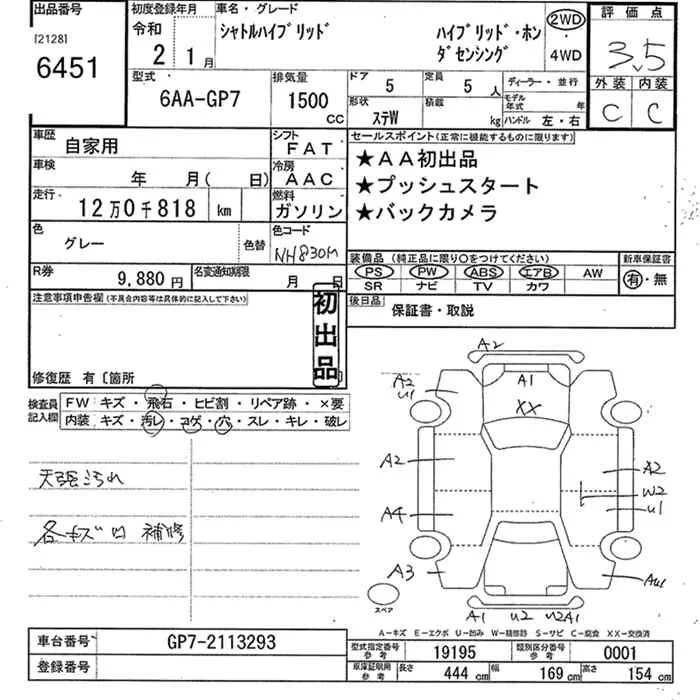 出品番号
[2128]
6451
初度登録年月
令和
2 1月
車名・グレード
シャトルハイブリッド ハイブリッド・ホン
ダセンシング
2WD
・
4WD
評価点
3.5
外装 内装
C C
型式
6AA-GP7
排気量
1500
CC
ドア 5
定員 5 人
形状 ステW
積載 kg
ディーラー・並行
モデル年式 年
ハンドル 左・右
車歴 自家用
シフト FAT
車検 年 月( 日)
冷房 AAC
走行 12万0千818 km
燃料 ガソリン
色 グレー 色替
色コード NH830M
R券 9,880 円
名変通知期限 月 日
セールスポイント(正常に機能するものに限ります)
★AA初出品
★プッシュスタート
★バックカメラ
装備品 (純正品に限り○をつけてください)
PS PW ABS エアB AW
SR ナビ TV カワ
新車保証書
有・無
後日品 保証書・取説
注意事項申告欄(不具合内容等は具体的に記入して下さい)
初出品
修復歴 有〔箇所
検査員記入欄
FW キズ・飛石・ヒビ割・リペア跡・×要
内装 キズ・汚レ・コゲ・穴・スレ・キレ・破レ
天張汚れ
各キズ凹 補修
A2
A2
U1
A1
XX
A2
A2
W2
U1
A4
A3
スペア
A1 U2 U2A1
A-キズ E-エクボ U-凹み W-補修跡 S-サビ C-腐食 XX-交換済
車台番号 GP7-2113293
登録番号
型式指定番号 参考 19195
類別区分番号 参考 0001
車庫証明用 参考 長さ 444 cm 幅 169 cm 高さ 154 cm